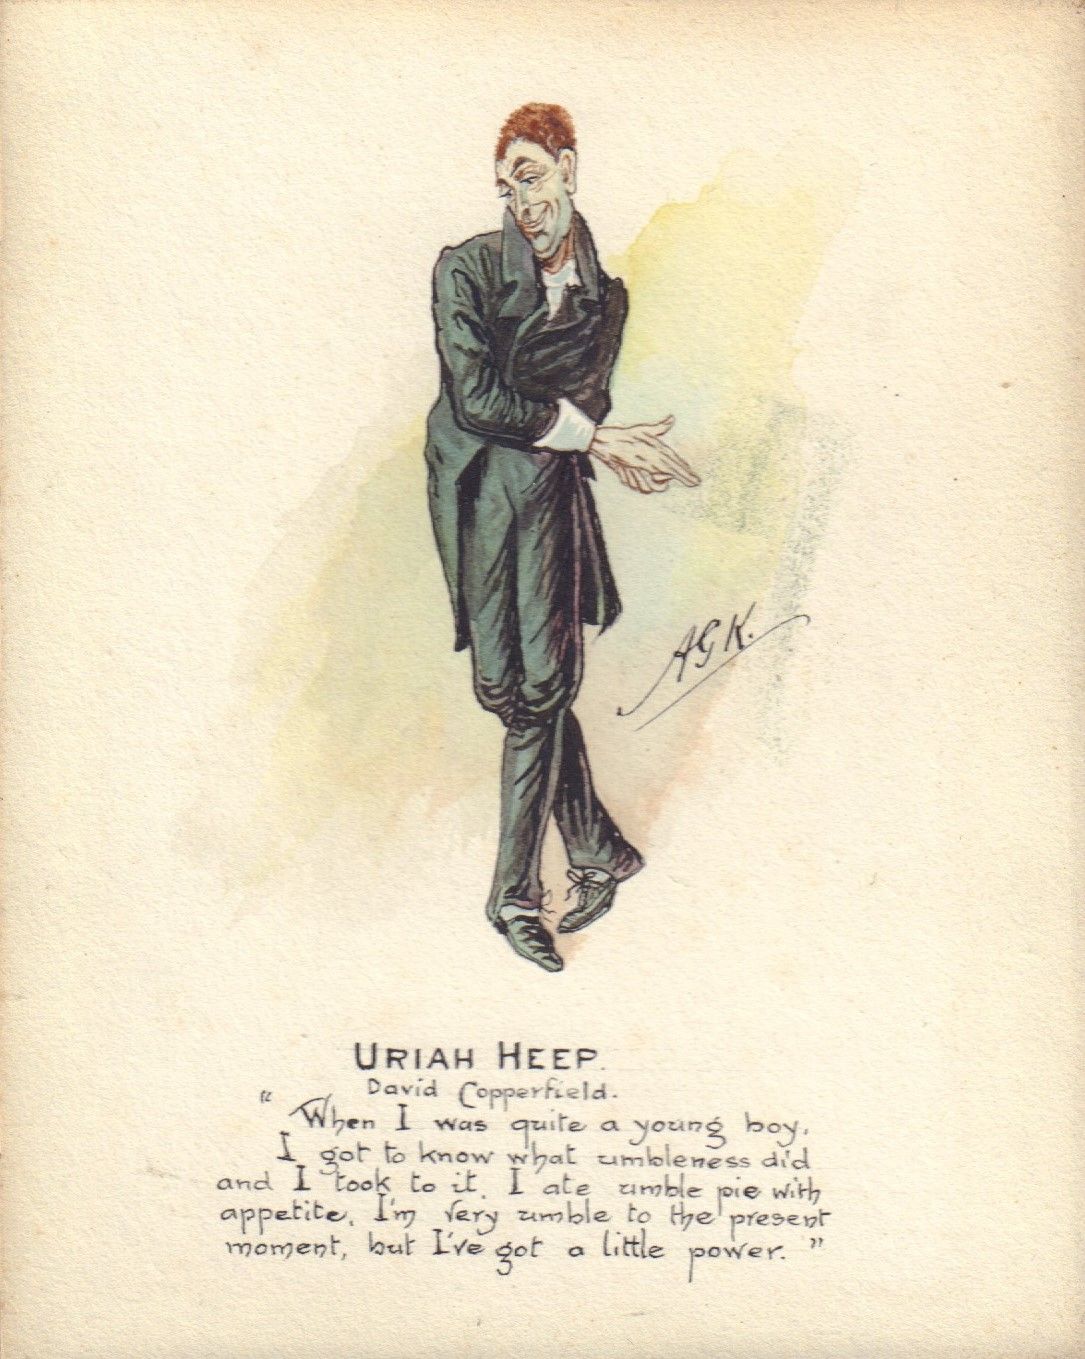 AGK.
URIAH HEEP.
David Copperfield.
"When I was quite a young boy,
I got to know what umbleness did
and I took to it. I ate umble pie with
appetite. I'm very umble to the present
moment, but I've got a little power."